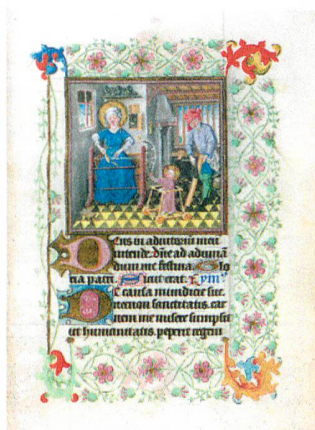 Deus in adiutoriū meū
intende. dñe ad adiuuā
dum me festina. Glo
ria patri. Sicut erat. ymn⁹
causa mundicie
sanctitatis. car
nem sumpsit
humanitatis. peperit regem